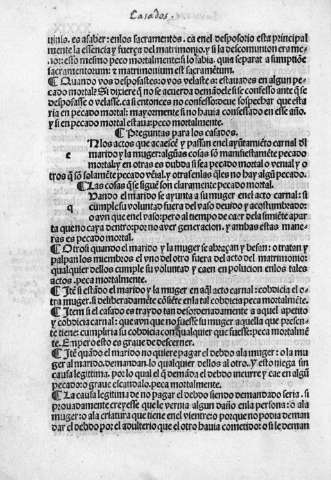 Casados.
uinia. es a saber: en los sacramentos. ca en el desposorio esta principal
mente la essencia y fuerça del matrimonio. y si la descomunion era me
nor: esso mesmo peco mortalmente: si lo sabia. quia separat a sumptiõe
sacramentorum: z matrimonium est sacramẽtum.
¶ Quando vos desposastes: o vos velastes: estauades en algun pe
cado mortal? Si dixere q̃ no se acuerda demãdele si se confesso ante q̃ se
desposasse o velasse. ca si entonces no confesso: deue sospechar que esta
ria en pecado mortal: mayormente si no hauia confessado en esse año.
y si en pecado mortal estaua: peco mortalmente.
¶ Preguntas para los casados.
e
N los actos que acaescẽ y passan en el ayuntamiẽto carnal dl
marido y la muger: algũas cosas sõ manifiestamẽte pecado
mortal: y en otras es dubda si sea pecado mortal o venial. y o
tros q̃ sõ solamẽte pecado vẽial. y otras en las q̃les no hay algũ pecado.
¶ Las cosas q̃ se siguẽ son claramente pecado mortal.
q
Uando el marido se ayunta a su muger en el acto carnal: si
cumple su voluntad fuera del vaso deuido y acostumbrado:
o avn que en el vaso: pero al tiempo de caer dela simiẽte apar
ta que no caya dentro: por no aver generacion. y ambas estas mane-
ras es pecado mortal.
¶ Otrosi quando el marido y la muger se abraçan y besan: o tratan y
palpan los miembros el vno del otro fuera del acto del matrimonio:
qualquier dellos cumple su voluntad y caen en polucion en los tales
actos. peca mortalmente.
¶ Itẽ si estãdo el marido y la muger en aq̃l acto carnal: cobdicia el o
tra muger. si deliberadamẽte cõsiẽte en la tal cobdicia peca mortalmẽte.
¶ Item si el casado es traydo tan desordenadamente a aquel apetito
y cobdicia carnal: que avn que no fuesse su muger aquella que presen-
te tiene: cumpliria su cobdicia con qualquier que fuesse: peca mortalmẽ
te. Empero esto es graue de discerner.
¶ Itẽ quãdo el marido no quiere pagar el debdo ala muger: o la mu
ger al marido. demandan lo qualquier dellos al otro. y esto niega sin
causa legitima. por lo qual el q̃ demãda el debdo incurre y cae en algũ
pecado: o graue escandalo. peca mortalmente.
¶ La causa legitima de no pagar el debdo siendo demandado seria. si
prouadamente creyesse que le vernia algun daño en la persona: o ala
muger: o ala criatura que tiene en el vientre: o porque no podia deman
dar el debdo por el adulterio que el otro hauia cometido: o si le deman